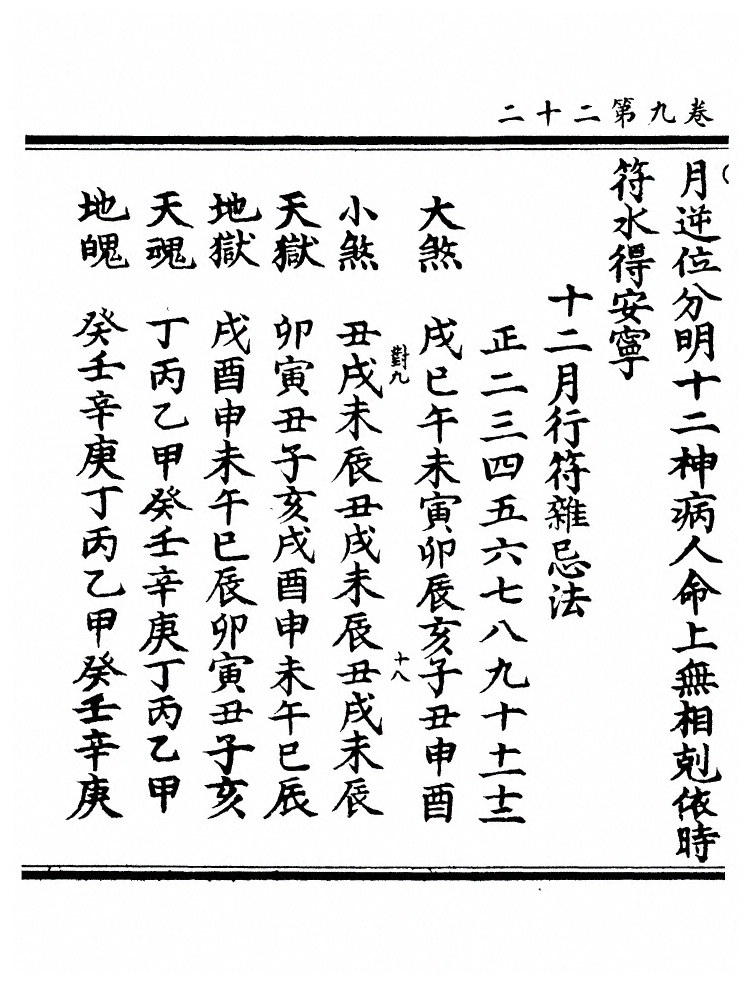 二十二第九卷
月逆位分明十二神病人命上無相剋依時
符水得安寧
十二月行符雜忌法
正二三四五六七八九十十一十二
大煞 戌巳午未寅卯辰亥子丑申酉
對九
十八
小煞 丑戌未辰丑戌未辰丑戌未辰
天獄 卯寅丑子亥戌酉申未午巳辰
地獄 戌酉申未午巳辰卯寅丑子亥
天魂 丁丙乙甲癸壬辛庚丁丙乙甲
地魄 癸壬辛庚丁丙乙甲癸壬辛庚